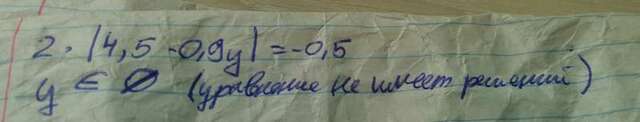 2. |4,5 -0,9y| = -0,5
y ∈ ∅ (уравнение не имеет решений)